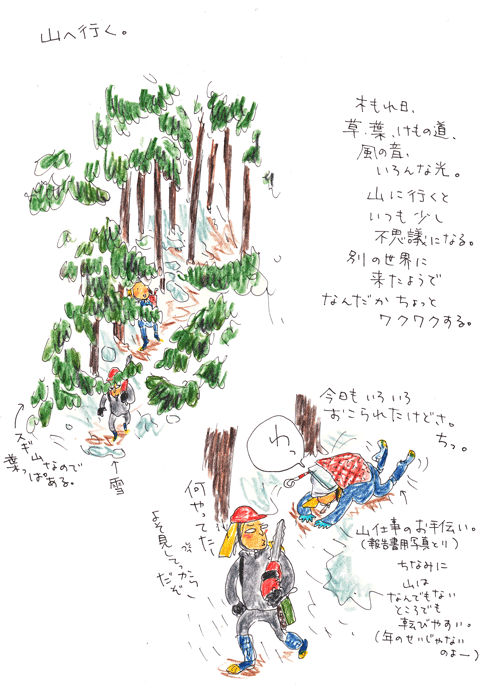 山へ行く。
木もれ日、
草、葉、けもの道、
風の音、
いろんな光。
山に行くと
いつも少し
不思議になる。
別の世界に
来たようで
なんだかちょっと
ワクワクする。
スギ山なので
葉っぱある。
雪
今日もいろいろ
おこられたけどさ。
ちっ。
わっ
何やってた
よそ見してっから
だぞ
山仕事のお手伝い。
(報告書用写真とり)
ちなみに
山は
なんでもない
ところでも
転びやすい。
(年のせいじゃない
のよー)